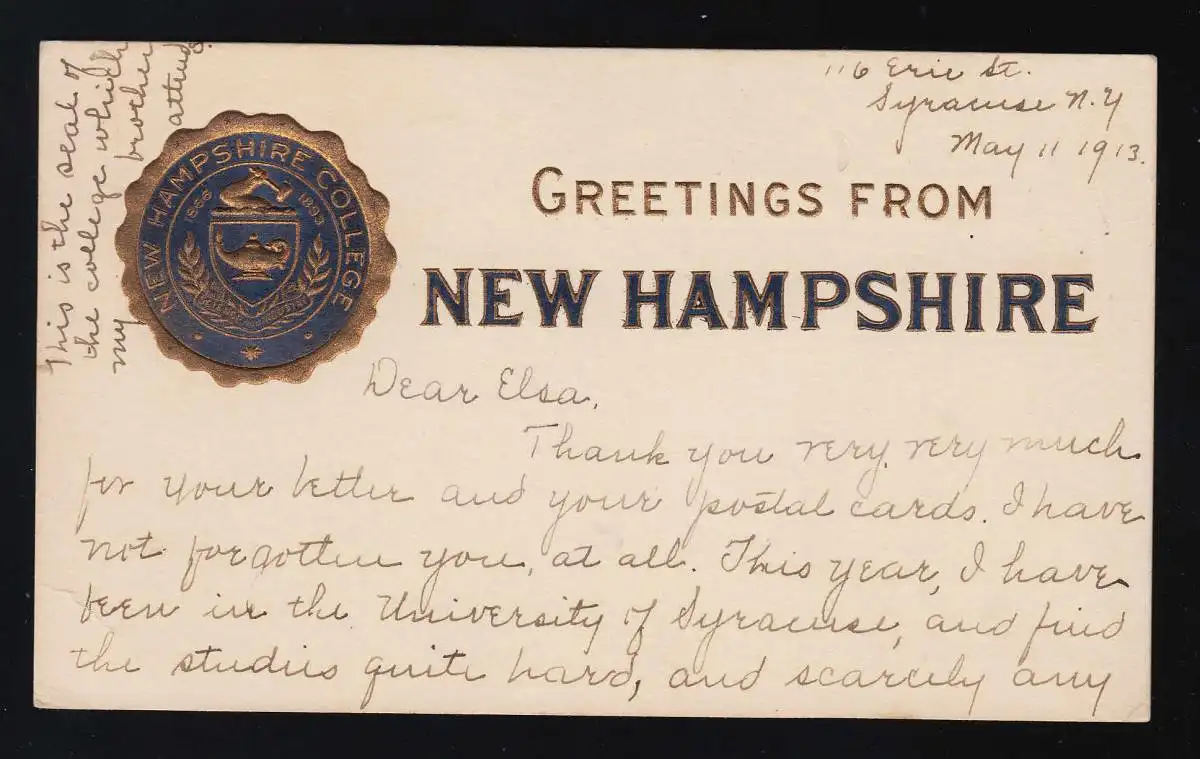 This is the seal of
the college which
my brother
attends.
116 Erie St.
Syracuse N.Y
May 11 1913.
NEW HAMPSHIRE COLLEGE
1866 1893
GREETINGS FROM
NEW HAMPSHIRE
Dear Elsa,
Thank you very, very much
for your letter and your postal cards. I have
not forgotten you, at all. This year, I have
been in the University of Syracuse, and find
the studies quite hard, and scarcely any